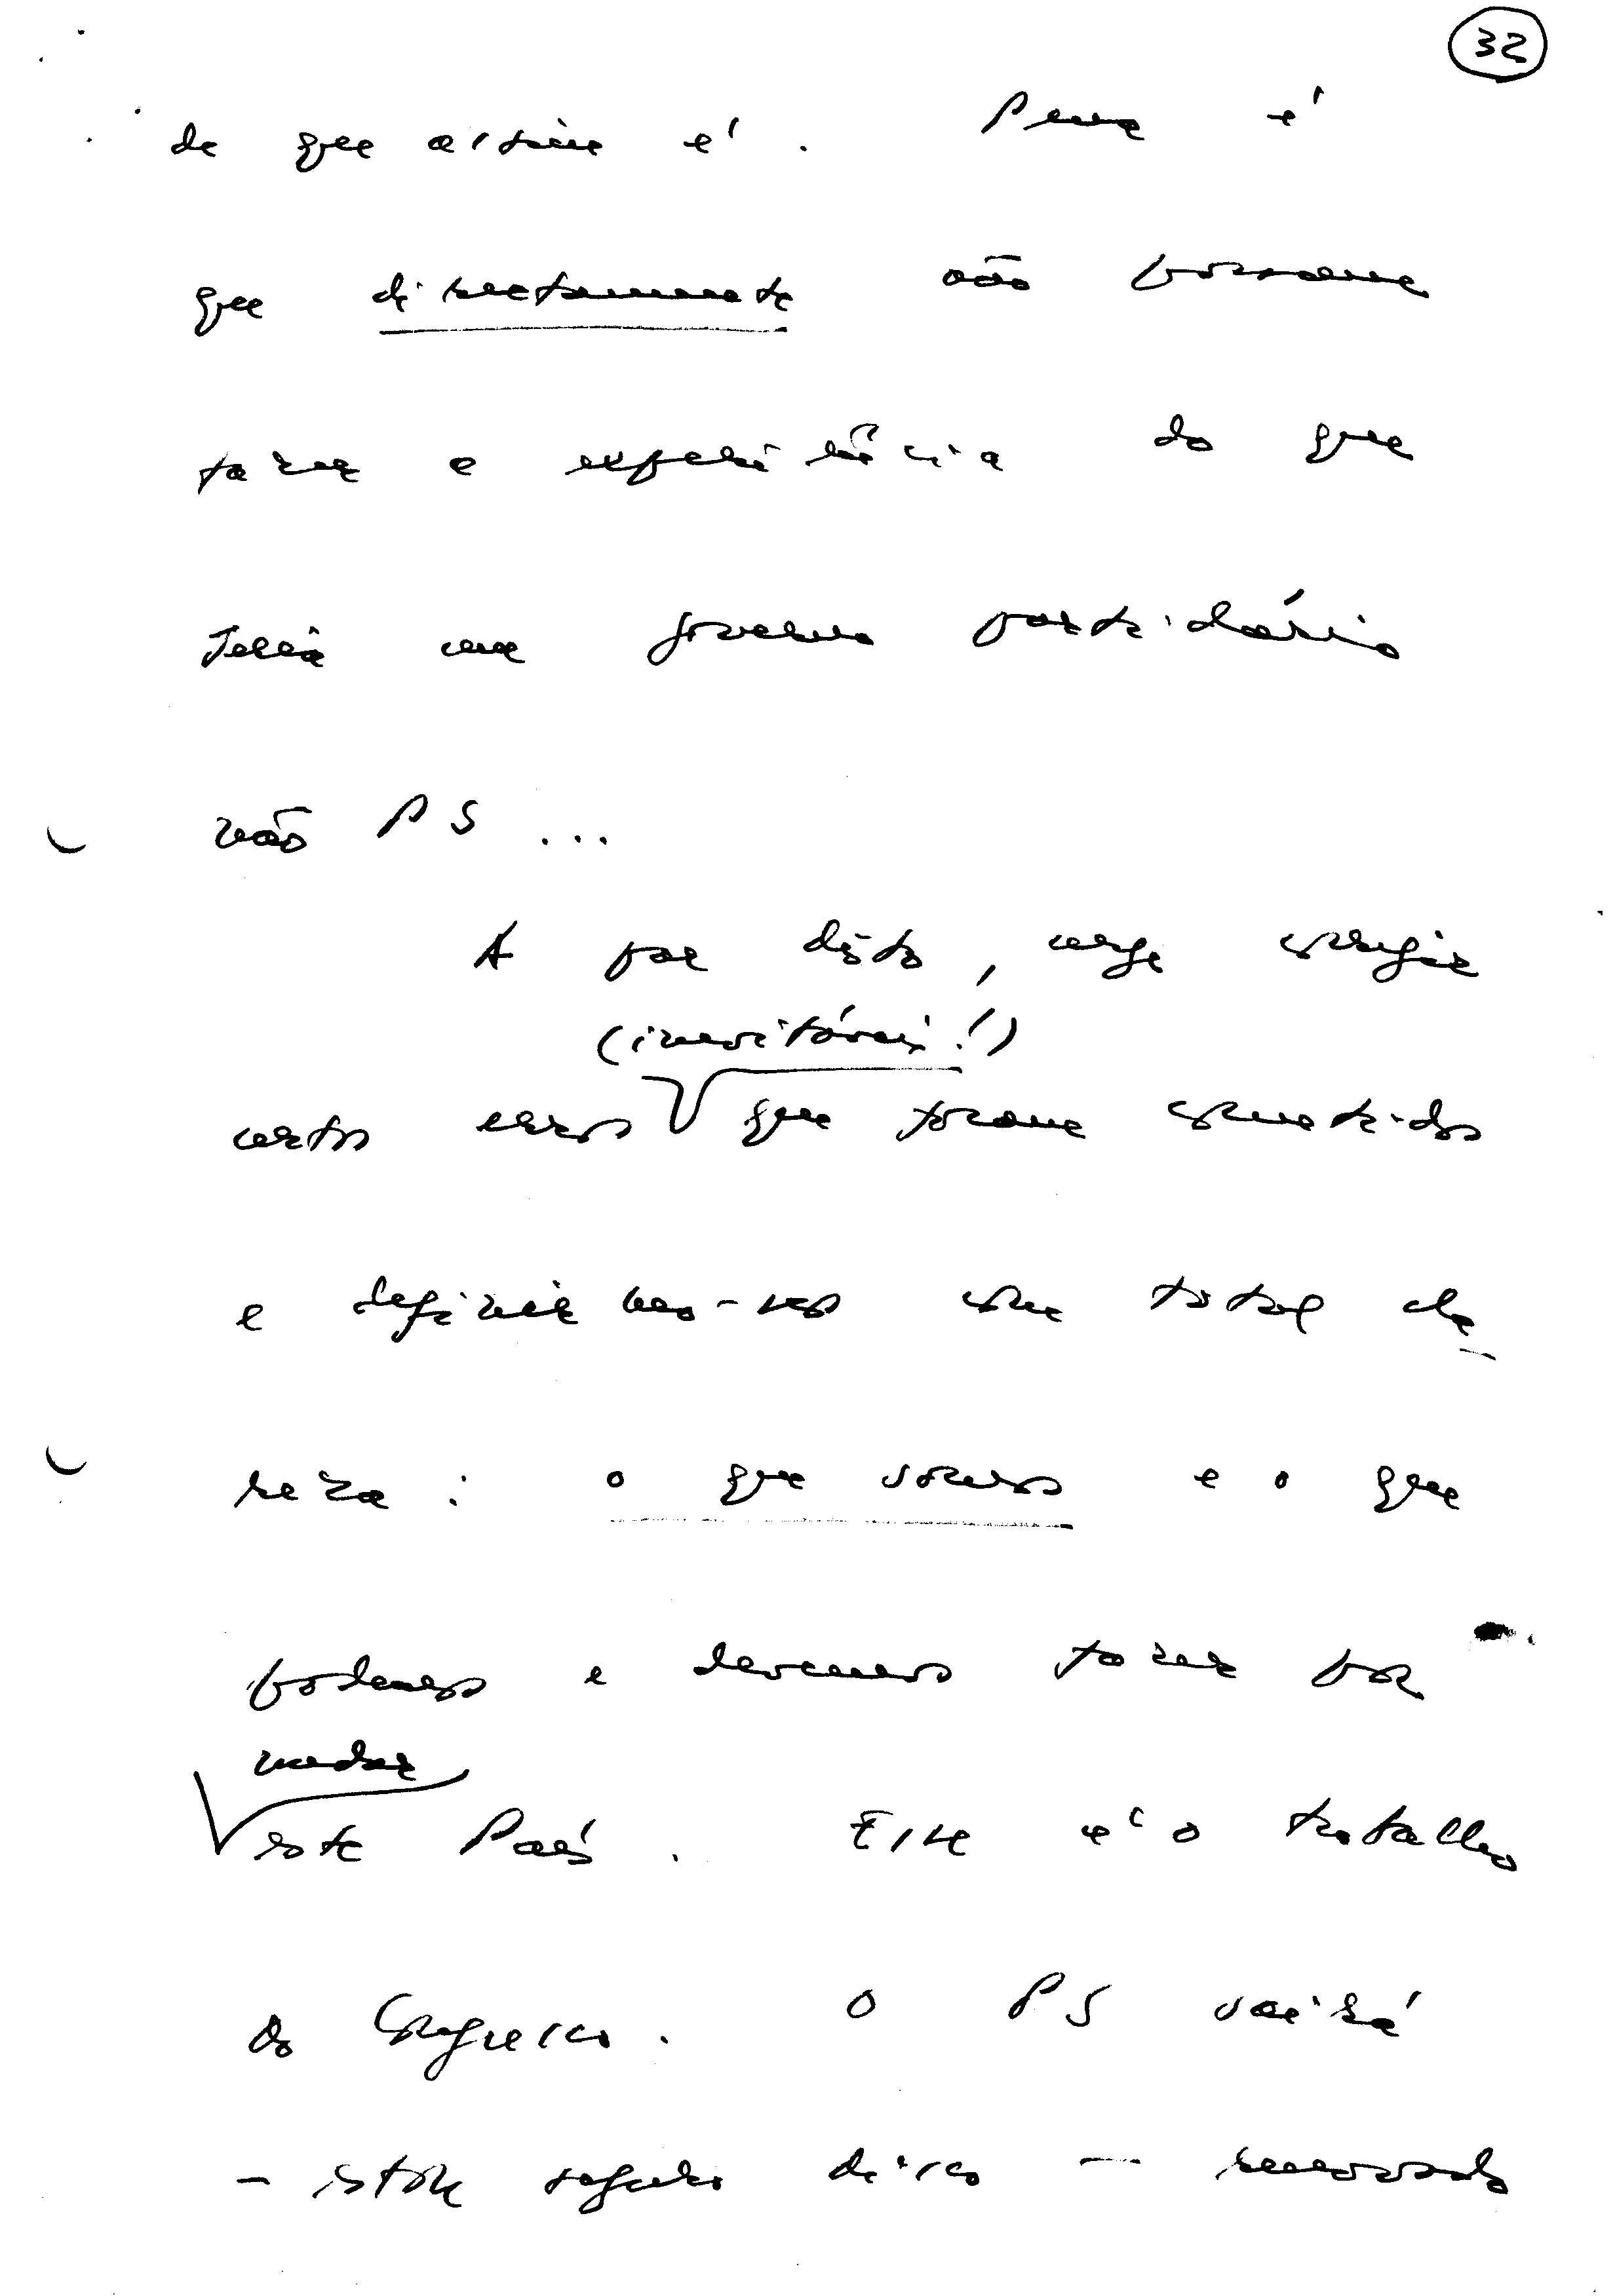 32
de que assim é. Pena é
que directamente não possam
fazer a experiência do que
seria um governo partidário
não PS...
A par disto, urge corrigir
(inevitáveis!)
certos erros que foram cometidos
e definirmo-nos com total cla-
reza: o que somos e o que
podemos e devemos fazer por
mudar
este País. Esse é o trabalho
do Congresso. O PS sairá
- estou seguro disso - renovado